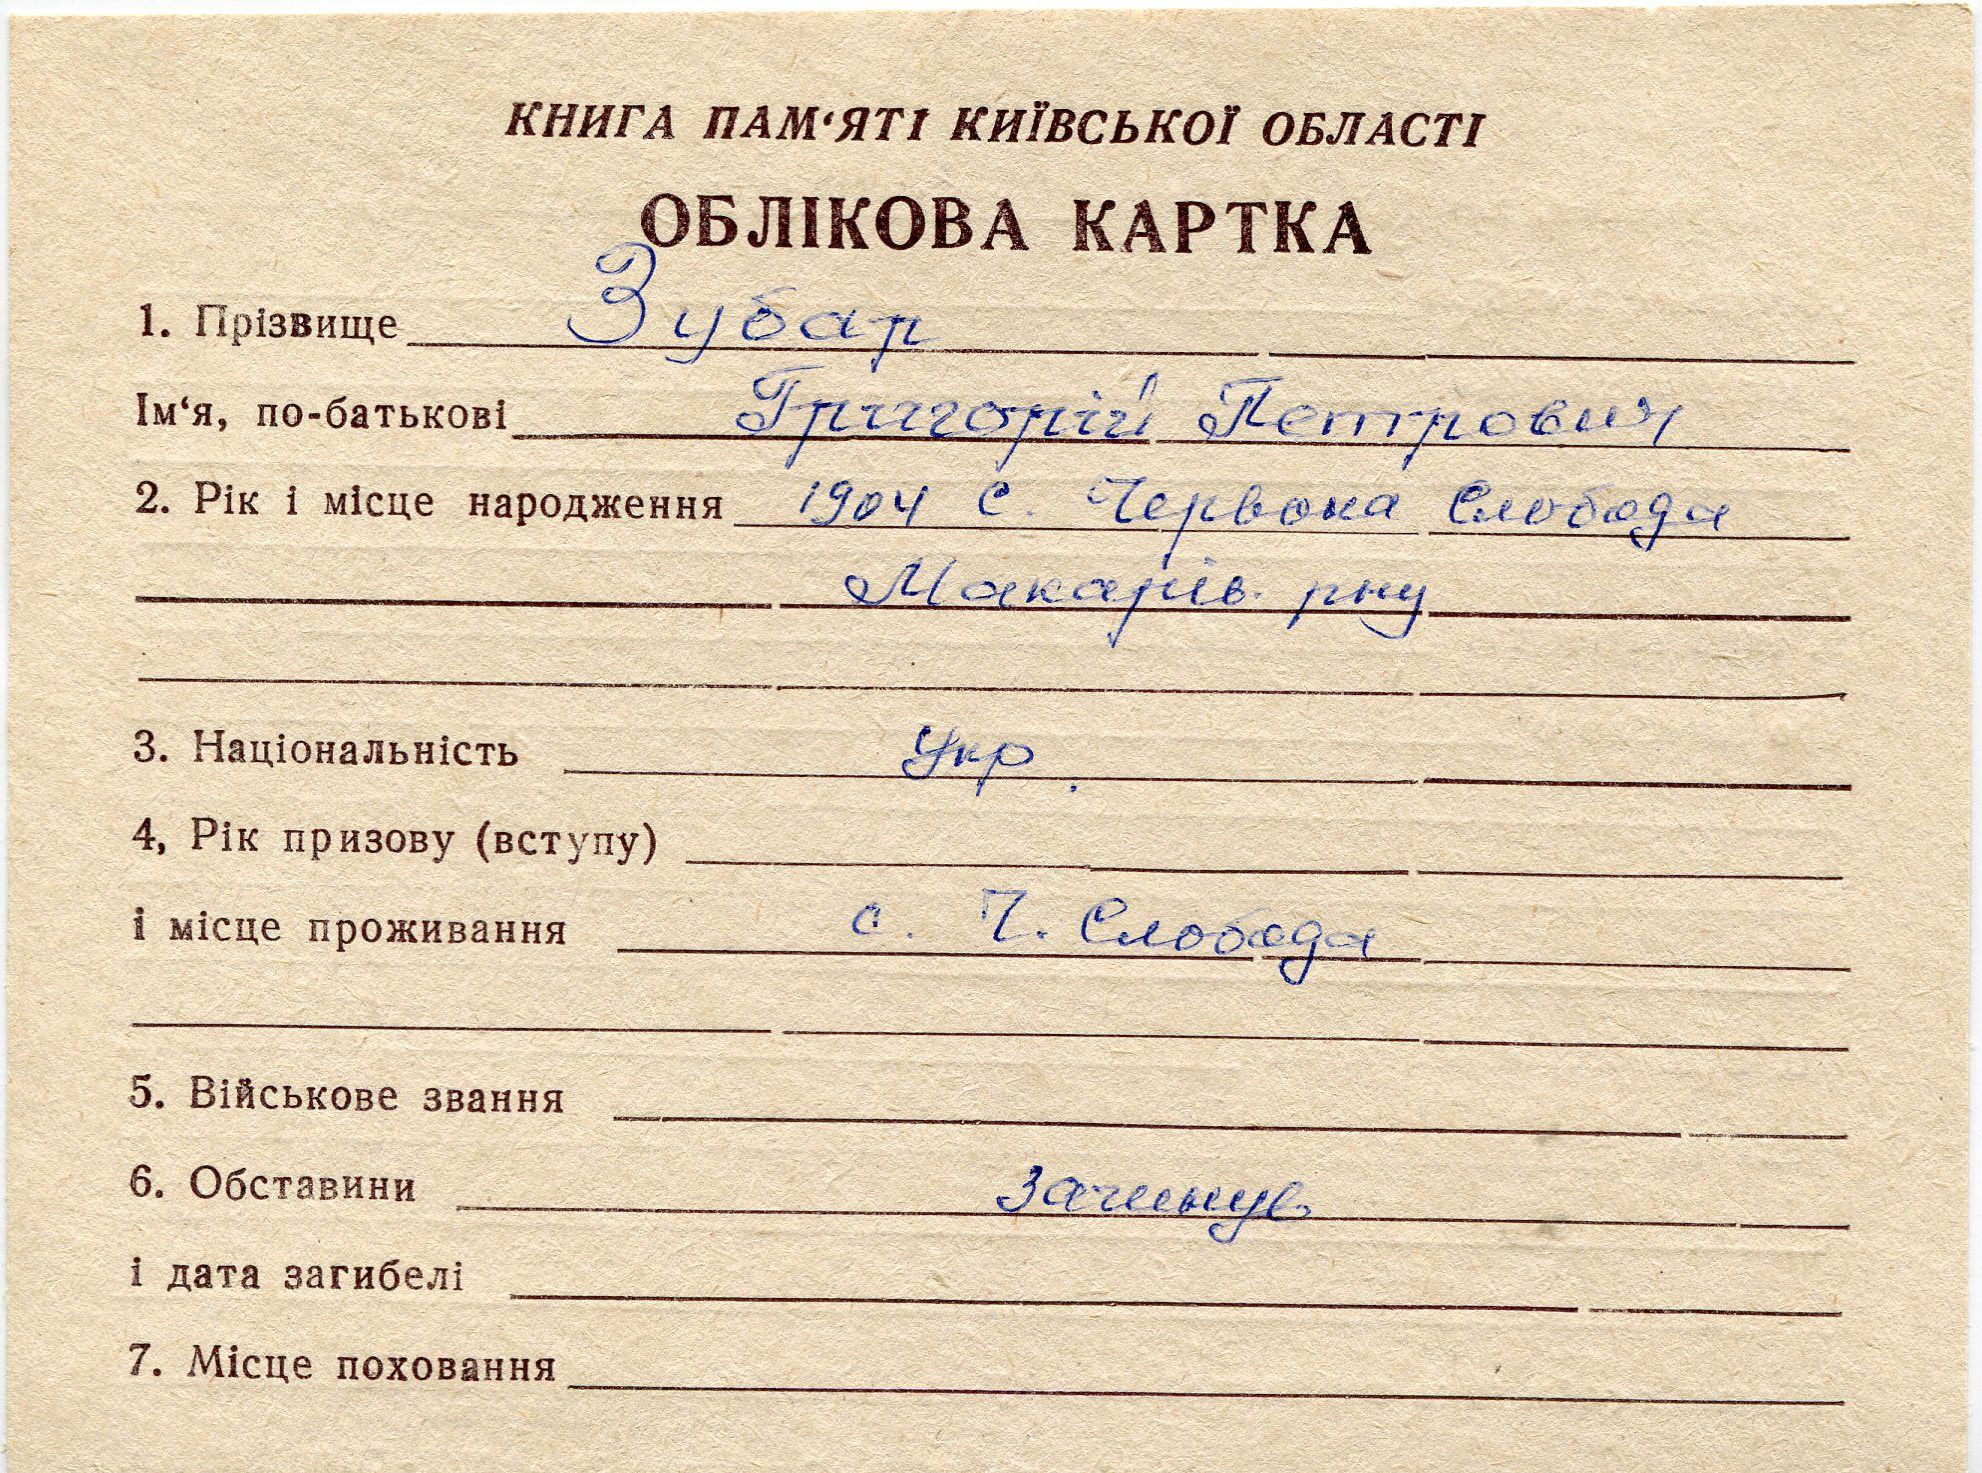 КНИГА ПАМ‘ЯТІ КИЇВСЬКОЇ ОБЛАСТІ
ОБЛІКОВА КАРТКА
1. Прізвище Зубар
Ім‘я, по-батькові Григорій Петрович
2. Рік і місце народження 1904 с. Червона Слобода
Макарів. рну
3. Національність Укр.
4, Рік призову (вступу)
і місце проживання с. Ч. Слобода
5. Військове звання
6. Обставини загинув
і дата загибелі
7. Місце поховання